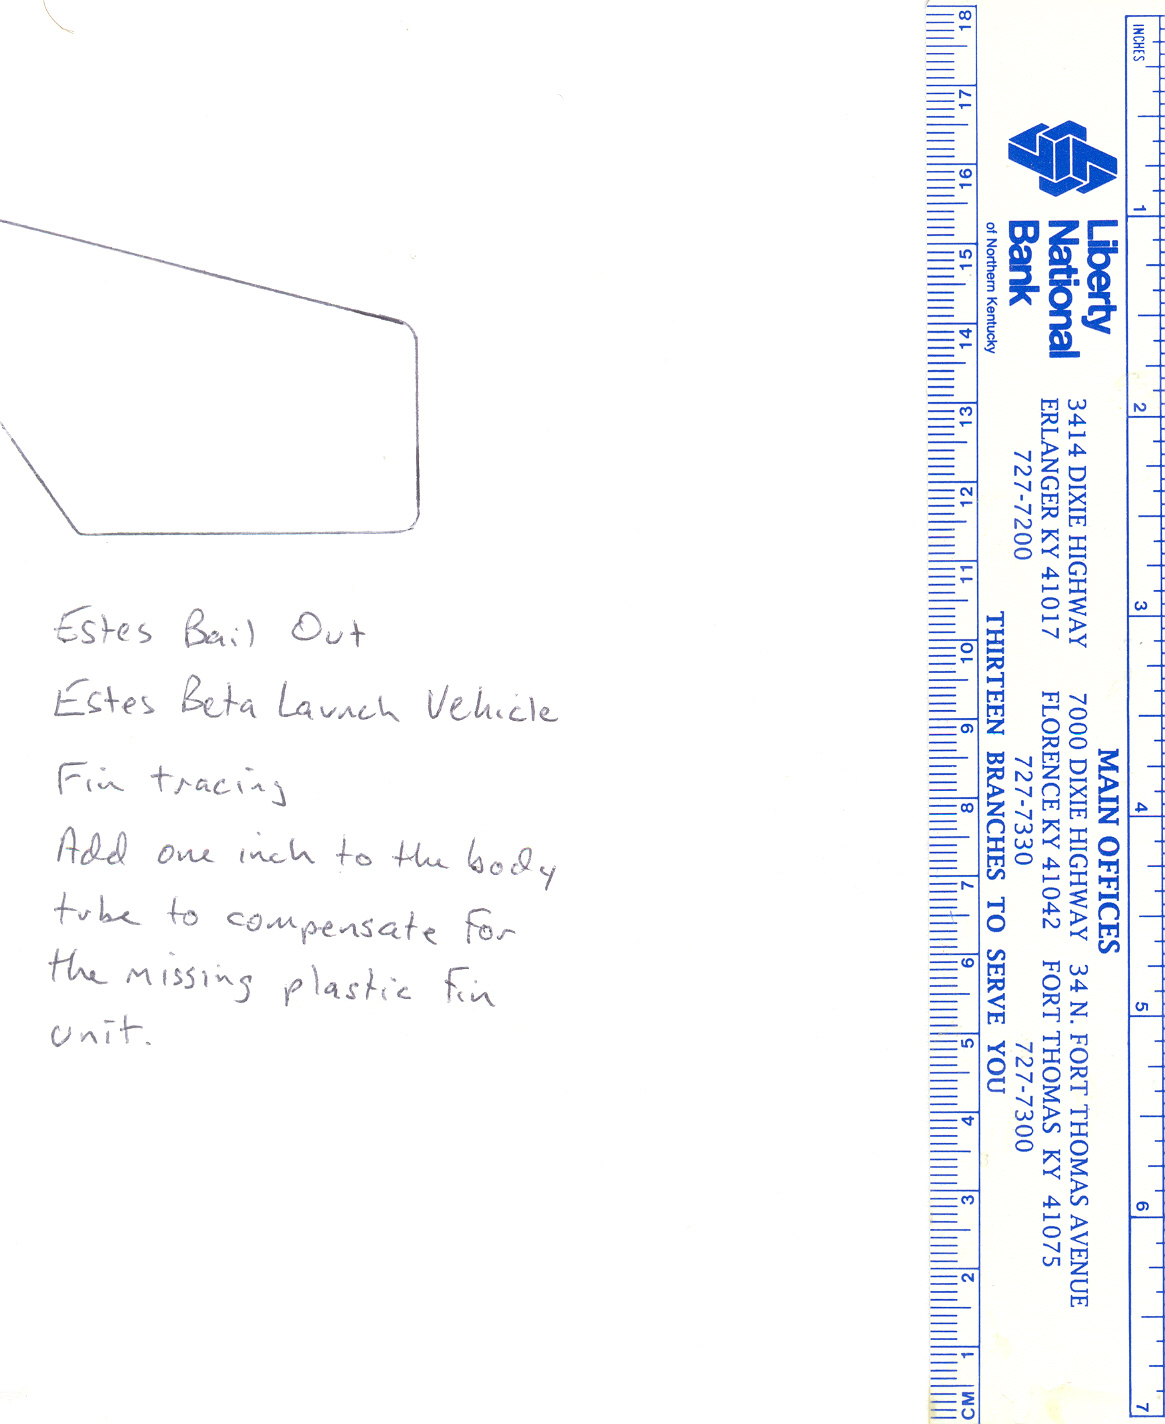 Estes Bail Out
Estes Beta Launch Vehicle
Fin tracing
Add one inch to the body
tube to compensate for
the missing plastic fin
unit.
INCHES
1
2
3
4
5
6
7
Liberty
National
Bank
of Northern Kentucky
MAIN OFFICES
3414 DIXIE HIGHWAY 7000 DIXIE HIGHWAY 34 N. FORT THOMAS AVENUE
ERLANGER KY 41017 FLORENCE KY 41042 FORT THOMAS KY 41075
727-7200 727-7330 727-7300
THIRTEEN BRANCHES TO SERVE YOU
18
17
16
15
14
13
12
11
10
9
8
7
6
5
4
3
2
1
CM